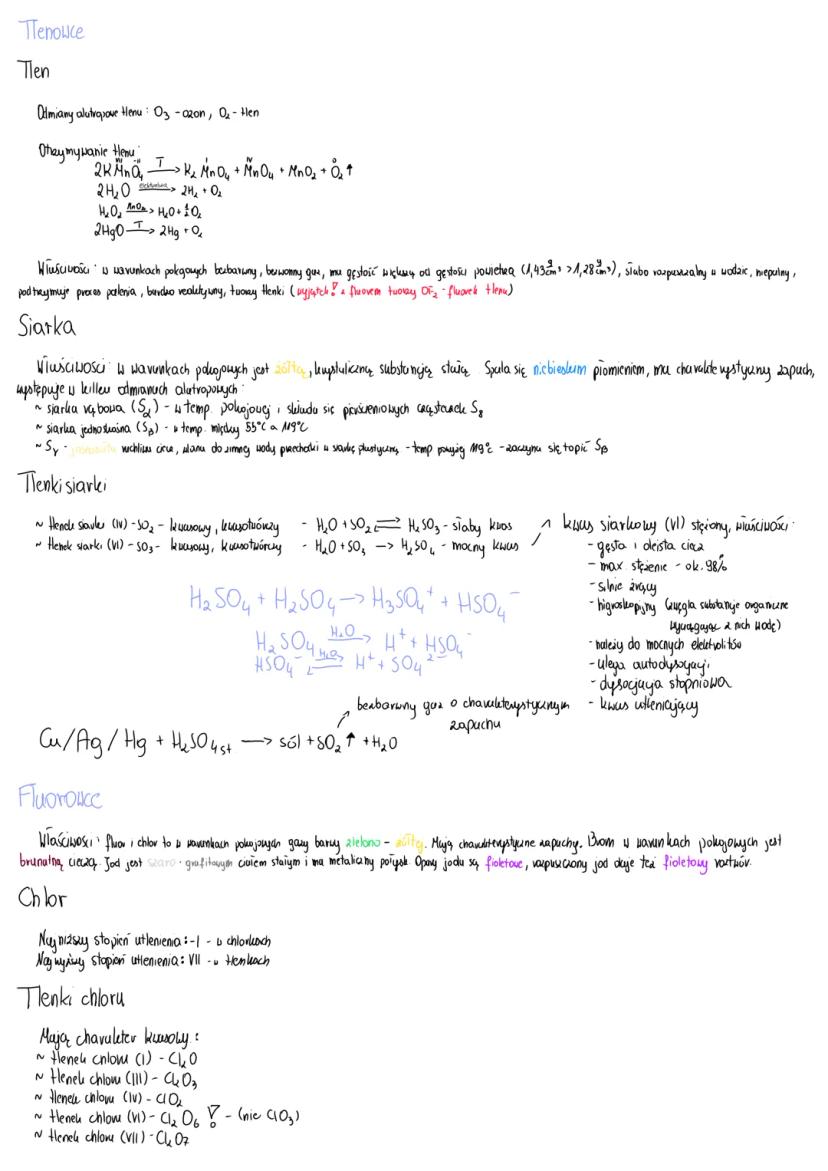 Tlenowce
Tlen
Odmiany alutropowe tlenu : O₃ - ozon, O₂ - tlen
Otrzymywanie tlenu:
2KMnO₄ –T→ K₂MnO₄ + MnO₄ + MnO₂ + O₂↑
2H₂O –elektroliza→ 2H₂ + O₂
H₂O₂ –MnO₂→ H₂O + ½O₂
2HgO –T→ 2Hg + O₂
Właściwości : w warunkach pokojowych bezbarwny, bezwonny gaz, ma gęstość większą od gęstości powietrza (1,43 g/cm³ > 1,28 g/cm³), słabo rozpuszczalny w wodzie, niepalny,
podtrzymuje proces palenia, bardzo reaktywny, tworzy tlenki (wyjątek! z fluorem tworzy OF₂ - fluorek tlenu)
Siarka
Właściwości : W warunkach pokojowych jest żółtą, krystaliczną substancją stałą. Spala się niebieskim płomieniem, ma charakterystyczny zapach,
występuje w kilku odmianach alutropowych:
~ siarka rąbowa (Sα) - w temp. pokojowej i składa się pierścieniowych cząsteczek S₈
~ siarka jednoskośna (Sβ) - w temp. między 95°C a 119°C
~ Sγ - ruchliwa ciecz, wlana do zimnej wody przechodzi w siarkę plastyczną - temp powyżej 119°C - zaczyna się topić Sβ
Tlenki siarki
~ tlenek siarki (IV) - SO₂ - kwasowy, kwasotwórczy - H₂O + SO₂ ⇄ H₂SO₃ - słaby kwas
~ tlenek siarki (VI) - SO₃ - kwasowy, kwasotwórczy - H₂O + SO₃ → H₂SO₄ - mocny kwas
kwas siarkowy (VI) stężony, właściwości:
- gęsta i oleista ciecz
- max. stężenie - ok. 98%
- silnie żrący
- higroskopijny (zwęgla substancje organiczne
wyciągając z nich wodę)
- należy do mocnych elektrolitów
- ulega autodysocjacji
- dysocjacja stopniowa
- kwas utleniający
H₂SO₄ + H₂SO₄ → H₃SO₄⁺ + HSO₄⁻
H₂SO₄ –H₂O→ H⁺ + HSO₄⁻
HSO₄⁻ ⇄(H₂O) H⁺ + SO₄²⁻
bezbarwny gaz o charakterystycznym
zapachu
Cu/Ag/Hg + H₂SO₄ st → sól + SO₂↑ + H₂O
Fluorowce
Właściwości : fluor i chlor to w warunkach pokojowych gazy barwy zielono - żółtej. Mają charakterystyczne zapachy. Brom w warunkach pokojowych jest
brunatną cieczą. Jod jest szaro - grafitowym ciałem stałym i ma metaliczny połysk. Opary jodu są fioletowe, rozpuszczony jod daje też fioletowy roztwór.
Chlor
Najniższy stopień utlenienia : -I - w chlorkach
Najwyższy stopień utlenienia : VII - w tlenkach
Tlenki chloru
Mają charakter kwasowy :
~ tlenek chloru (I) - Cl₂O
~ tlenek chloru (III) - Cl₂O₃
~ tlenek chloru (IV) - ClO₂
~ tlenek chloru (VI) - Cl₂O₆ ! - (nie ClO₃)
~ tlenek chloru (VII) - Cl₂O₇